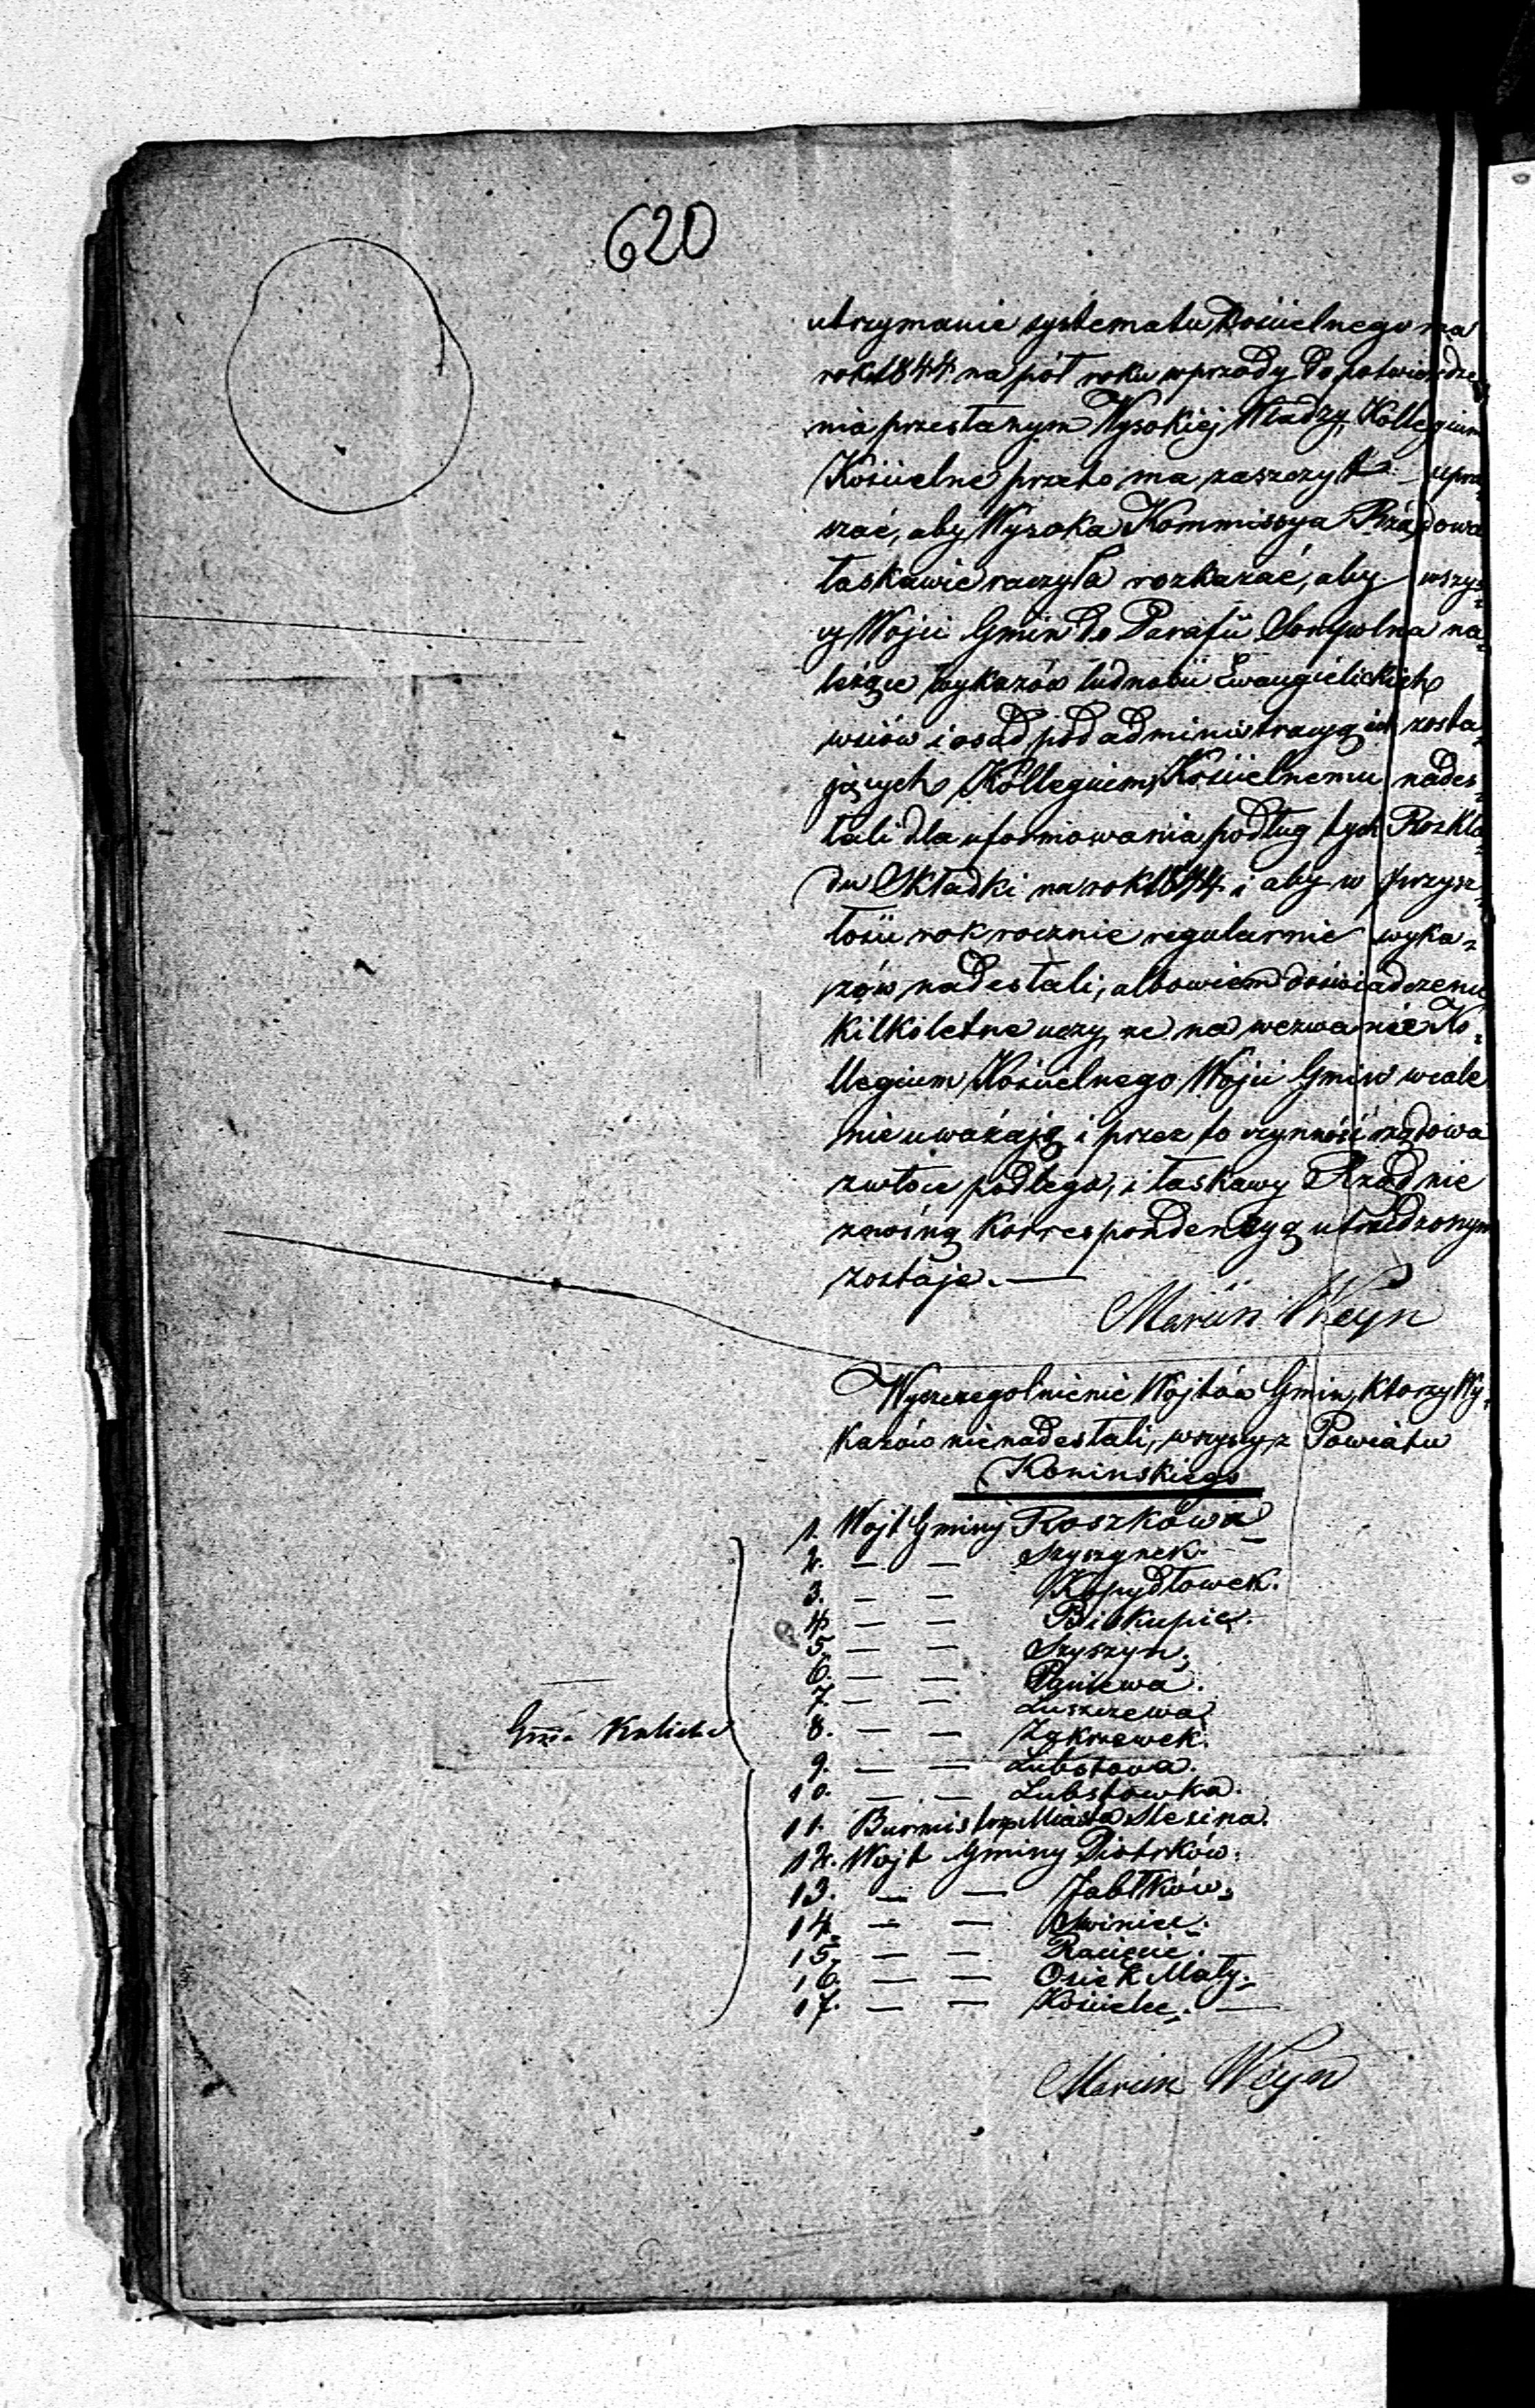 620
utrzymanie systematu Kościelnego na
rok 1844 na pół roku wprzódy do potwierdze
nia przesłanym Wysokiej Władzy, Kollegium
Kościelne przeto ma zaszczyt upra
szać, aby Wysoka Kommissya Rządowa
łaskawie raczyła rozkazać, aby wszys-
cy Wojci Gmin do Parafii Sompolna na-
leżące wykazów ludności Ewangielickich
wsiów i osad pod administracyą ich zosta-
jących Kollegium Kościelnemu nades-
łali dla uformowania podług tych Rozkła-
du Składki na rok 1844 i aby w przysz-
łości rok rocznie regularnie wyka-
zów nadesłali, albowiem doświadczenie
kilkoletne uczy, że na wezwanie Ko-
llegium Kościelnego Wójci Gmin wcale
nie uważają i przez to czynność rządowa
zwłoce podlega, i łaskawy Rząd nie
korrespondencyą utrudzonym
zostaje. —
Weyn
Wyszczegolnienie Wojtów Gmin, ktorzy Wy-
kazów nienadesłali, wszyscy z Powiatu
Koninskiego
1. Wojt Gminy Roszkowa
2. — — Szyszynek.
3. — — Kopydłowek.
4. — — Biskupie.
5. — — Szyszyn,
6. — — Pąielewa.
7. — — Luszczewa
8. — — Zakrzewek.
9. — — Lubstowa.
10. — — Lubstowka.
11. Burmistrz Miasta Slesina.
12. Wojt Gminy Piotrków.
13. — — Jabłków,
14. — — Swinice.
15. — — Racięcie.
16. — — Osiek Mały.
17. — — Kościelec. —
Weyn